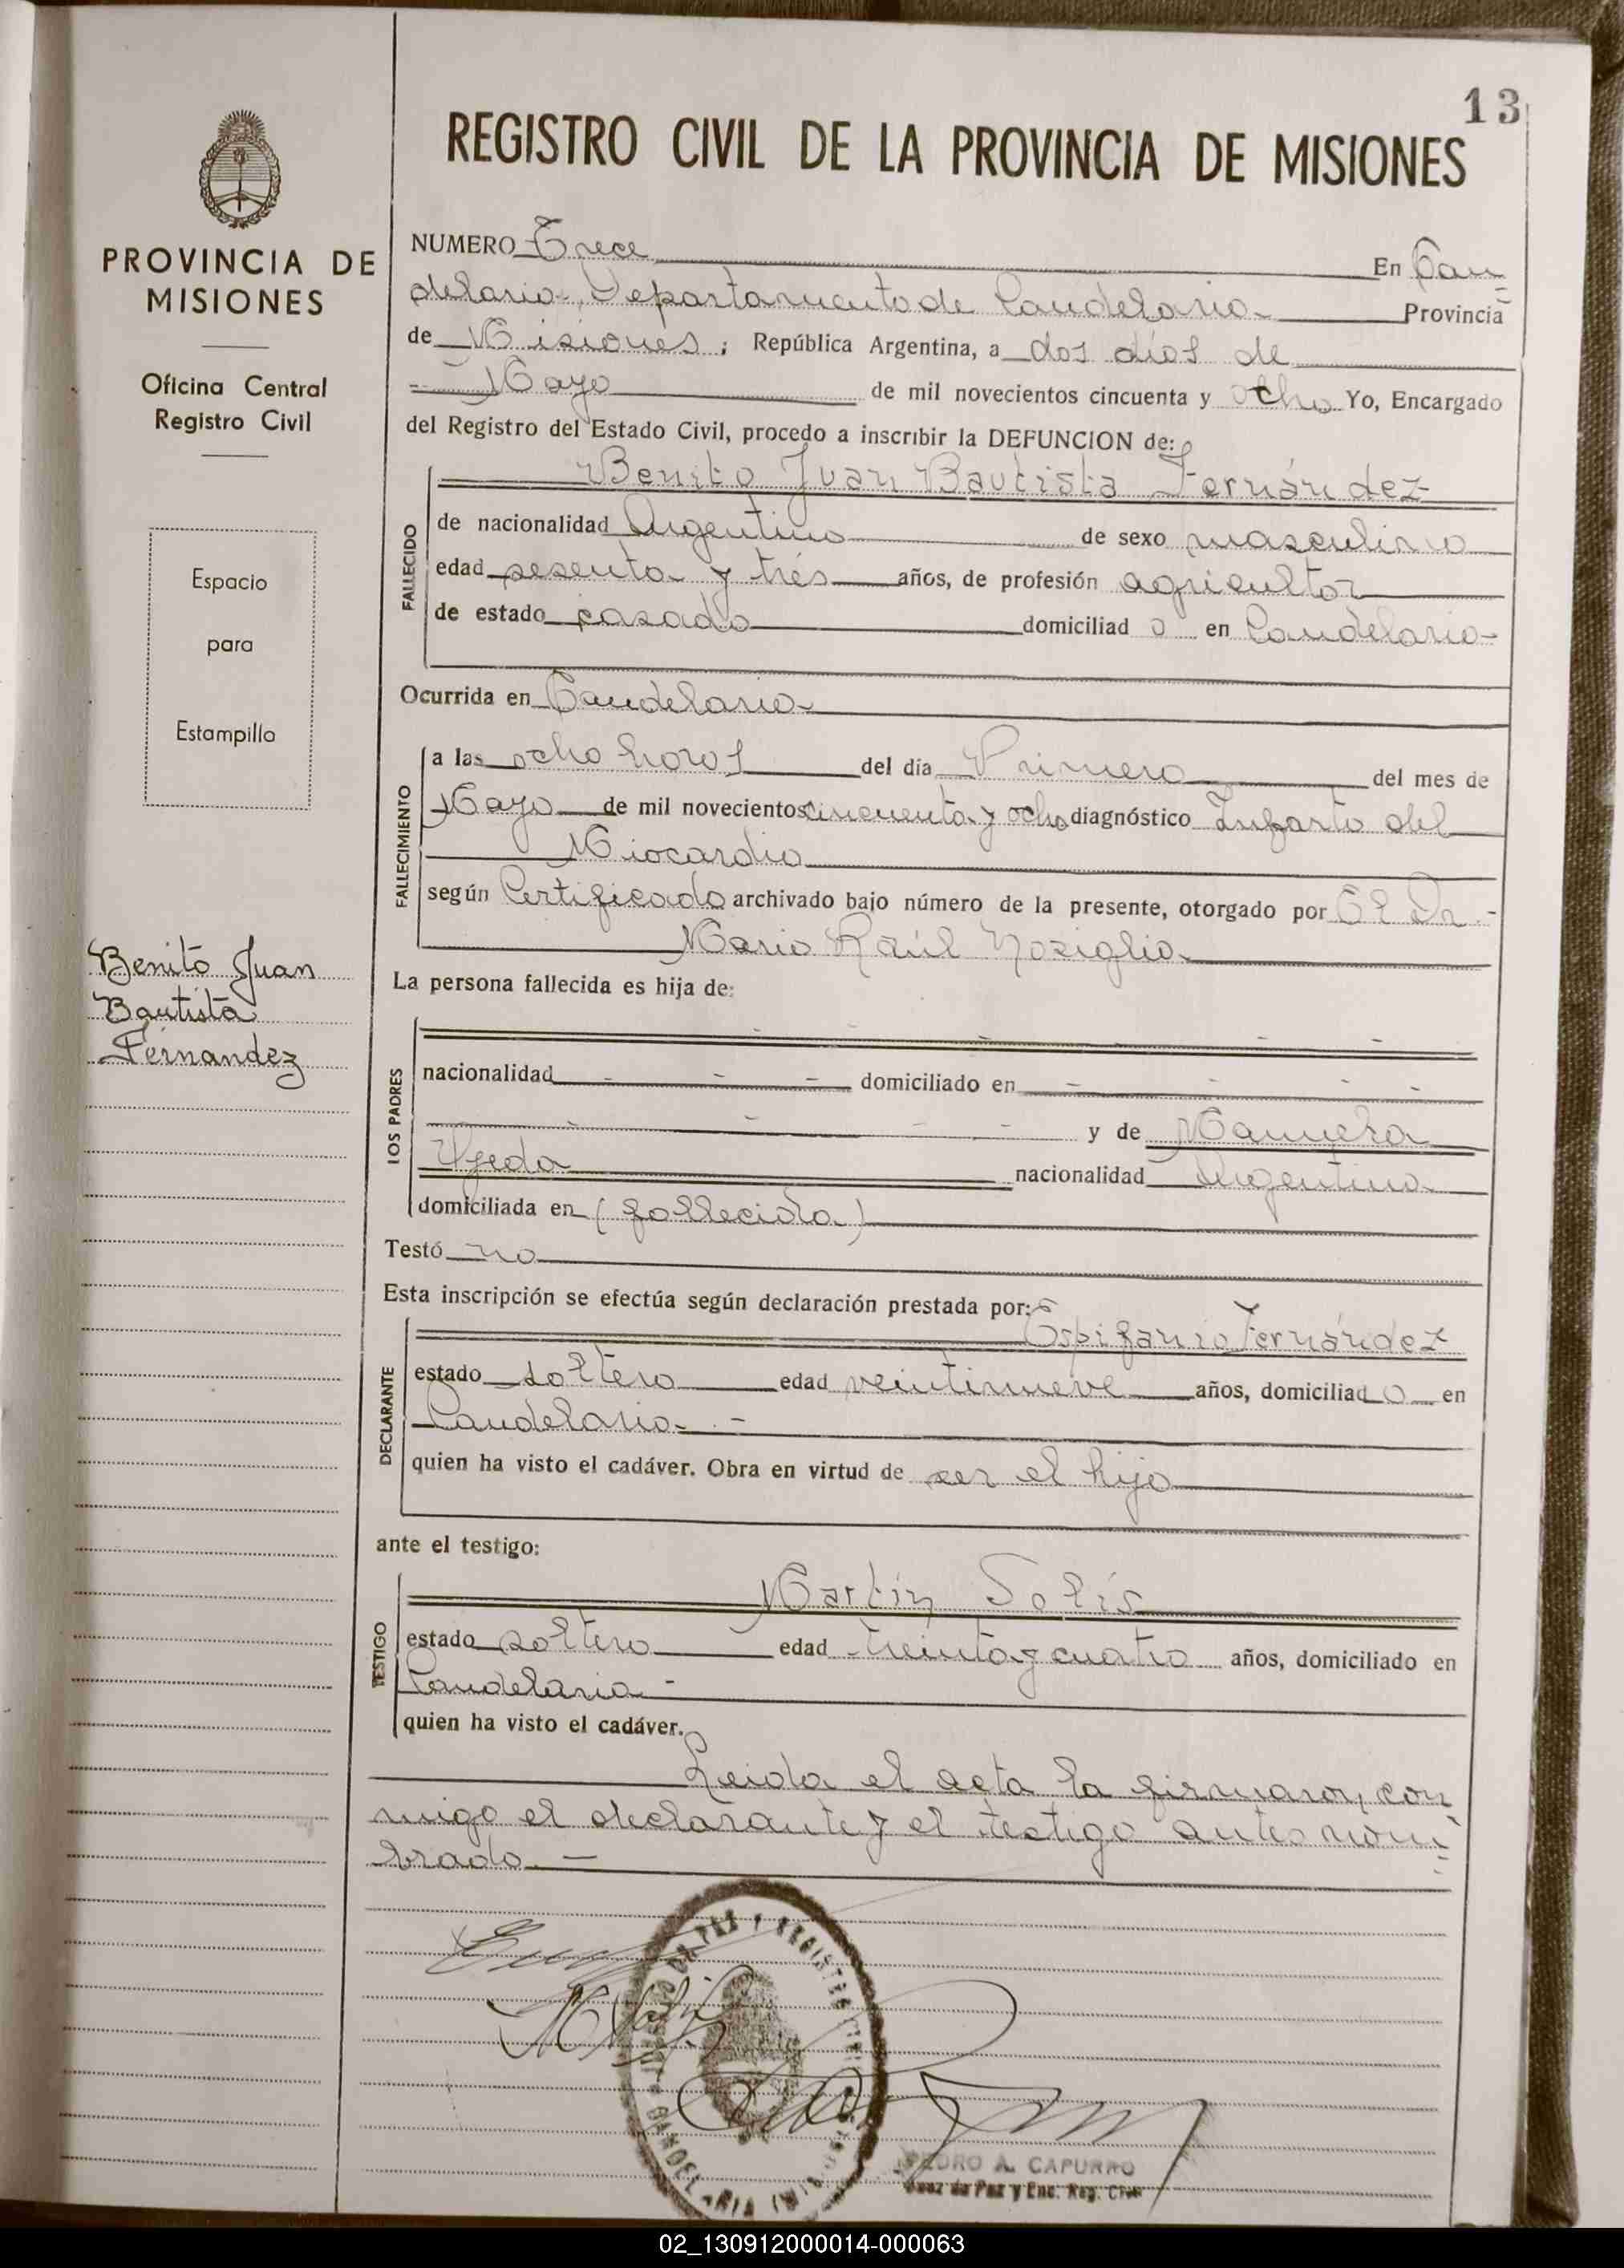 13
REGISTRO CIVIL DE LA PROVINCIA DE MISIONES
PROVINCIA DE
MISIONES
Oficina Central
Registro Civil
Espacio
para
Estampilla
Benito Juan
Bautista
Fernandez
NUMERO Trece En Can
delaria, Departamento de Candelaria Provincia
de Misiones ; República Argentina, a dos días de
Mayo de mil novecientos cincuenta y ocho Yo, Encargado
del Registro del Estado Civil, procedo a inscribir la DEFUNCION de:
Benito Juan Bautista Fernández
FALLECIDO
de nacionalidad Argentino de sexo masculino
edad sesenta y tres años, de profesión agricultor
de estado casado domiciliad o en Candelaria
Ocurrida en Candelaria
FALLECIMIENTO
a las ocho horas del día Primero del mes de
Mayo de mil novecientos cincuenta y ocho diagnóstico Infarto del
Miocardio
según Certificado archivado bajo número de la presente, otorgado por El Dr.
Mario Raúl
La persona fallecida es hija de:
LOS PADRES
nacionalidad domiciliado en
y de Manuela
Ojeda nacionalidad Argentina
domiciliada en (fallecida)
Testó no
Esta inscripción se efectúa según declaración prestada por:
Espifanio Fernández
DECLARANTE
estado soltero edad veintinueve años, domiciliad o en
Candelaria
quien ha visto el cadáver. Obra en virtud de ser el hijo
ante el testigo:
Martín Solís
TESTIGO
estado soltero edad treinta y cuatro años, domiciliado en
Candelaria
quien ha visto el cadáver.
Leida el acta la firmaron, con
migo el declarante y el testigo antes nom
brado.
PEDRO A. CAPURRO
Juez de Paz y Enc. Reg. Civil
02_130912000014-000063